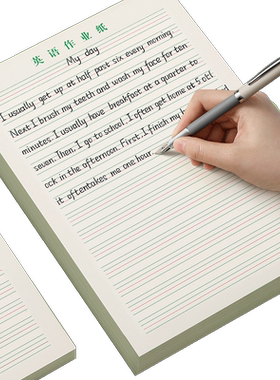 英语作业纸
My day
I usually get up at half past six every morning.
Next I brush my teeth and wash my face for ten
minutes. I usually have breakfast at a quarter to
seven. Then, I go to school. I often get home at 5 o'cl
ock in the afternoon. First, I finish my
it oftentakes me one hour